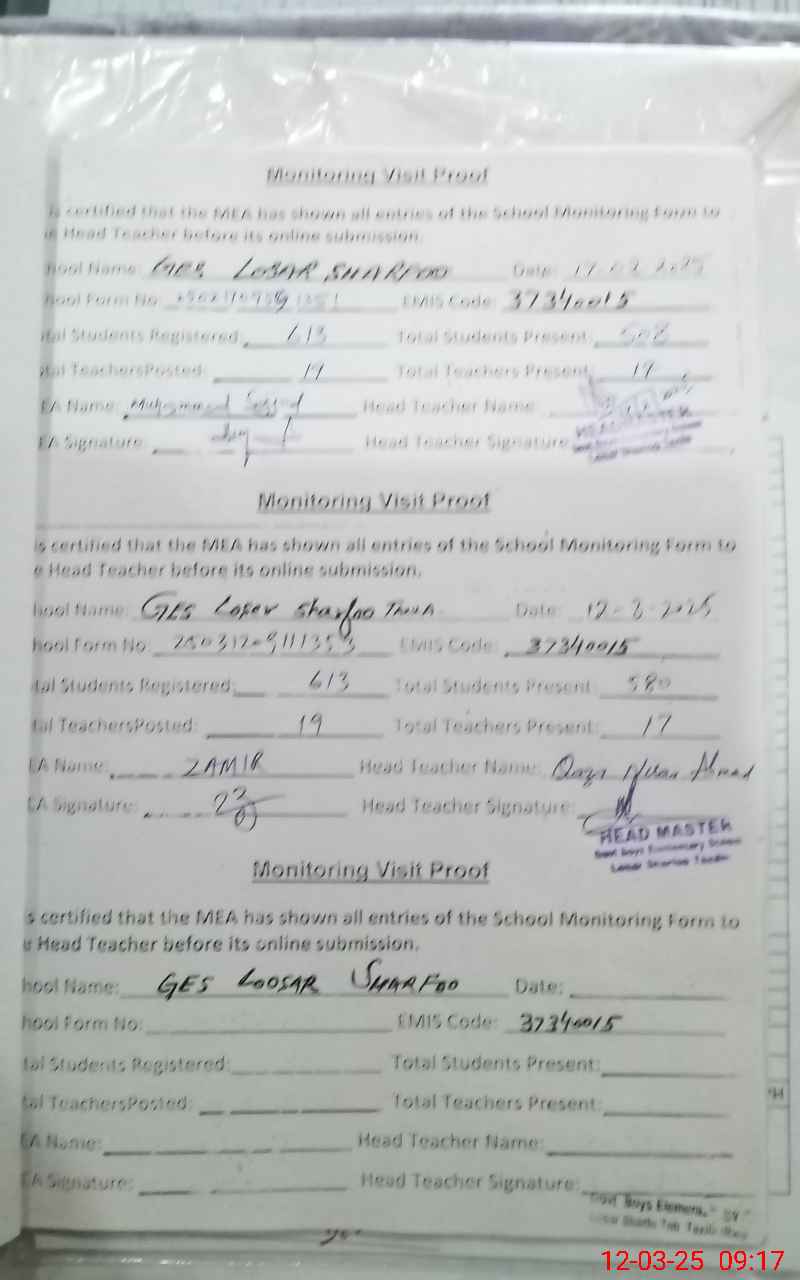 Monitoring Visit Proof
is certified that the MEA has shown all entries of the School Monitoring Form to
e Head Teacher before its online submission.
hool Name: GES LOSAR SHARFOO Date: 17-02-2025
hool Form No: EMIS Code: 37340015
tal Students Registered: 613 Total Students Present: 508
tal TeachersPosted: 19 Total Teachers Present: 19
EA Name: Muhammad Head Teacher Name:
EA Signature: Head Teacher Signature:
Monitoring Visit Proof
is certified that the MEA has shown all entries of the School Monitoring Form to
e Head Teacher before its online submission.
hool Name: GES Loser sharfoo Taxila Date: 12-3-2025
hool Form No: EMIS Code: 37340015
tal Students Registered: 613 Total Students Present: 580
tal TeachersPosted: 19 Total Teachers Present: 17
EA Name: ZAMIR Head Teacher Name: Ahmad
EA Signature: Head Teacher Signature:
HEAD MASTER
Govt Boys Elementary School
Losar Sharfoo Taxila
Monitoring Visit Proof
s certified that the MEA has shown all entries of the School Monitoring Form to
e Head Teacher before its online submission.
hool Name: GES LOOSAR SHARFOO Date:
hool Form No: EMIS Code: 37340015
tal Students Registered: Total Students Present:
tal TeachersPosted: Total Teachers Present:
EA Name: Head Teacher Name:
EA Signature: Head Teacher Signature:
Govt Boys Elemen
12-03-25 09:17